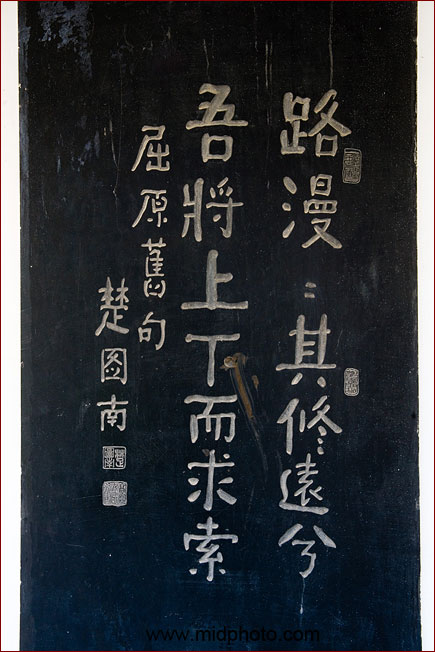 路漫〻其修遠兮
吾將上下而求索
屈原舊句
楚圖南
www.midphoto.com